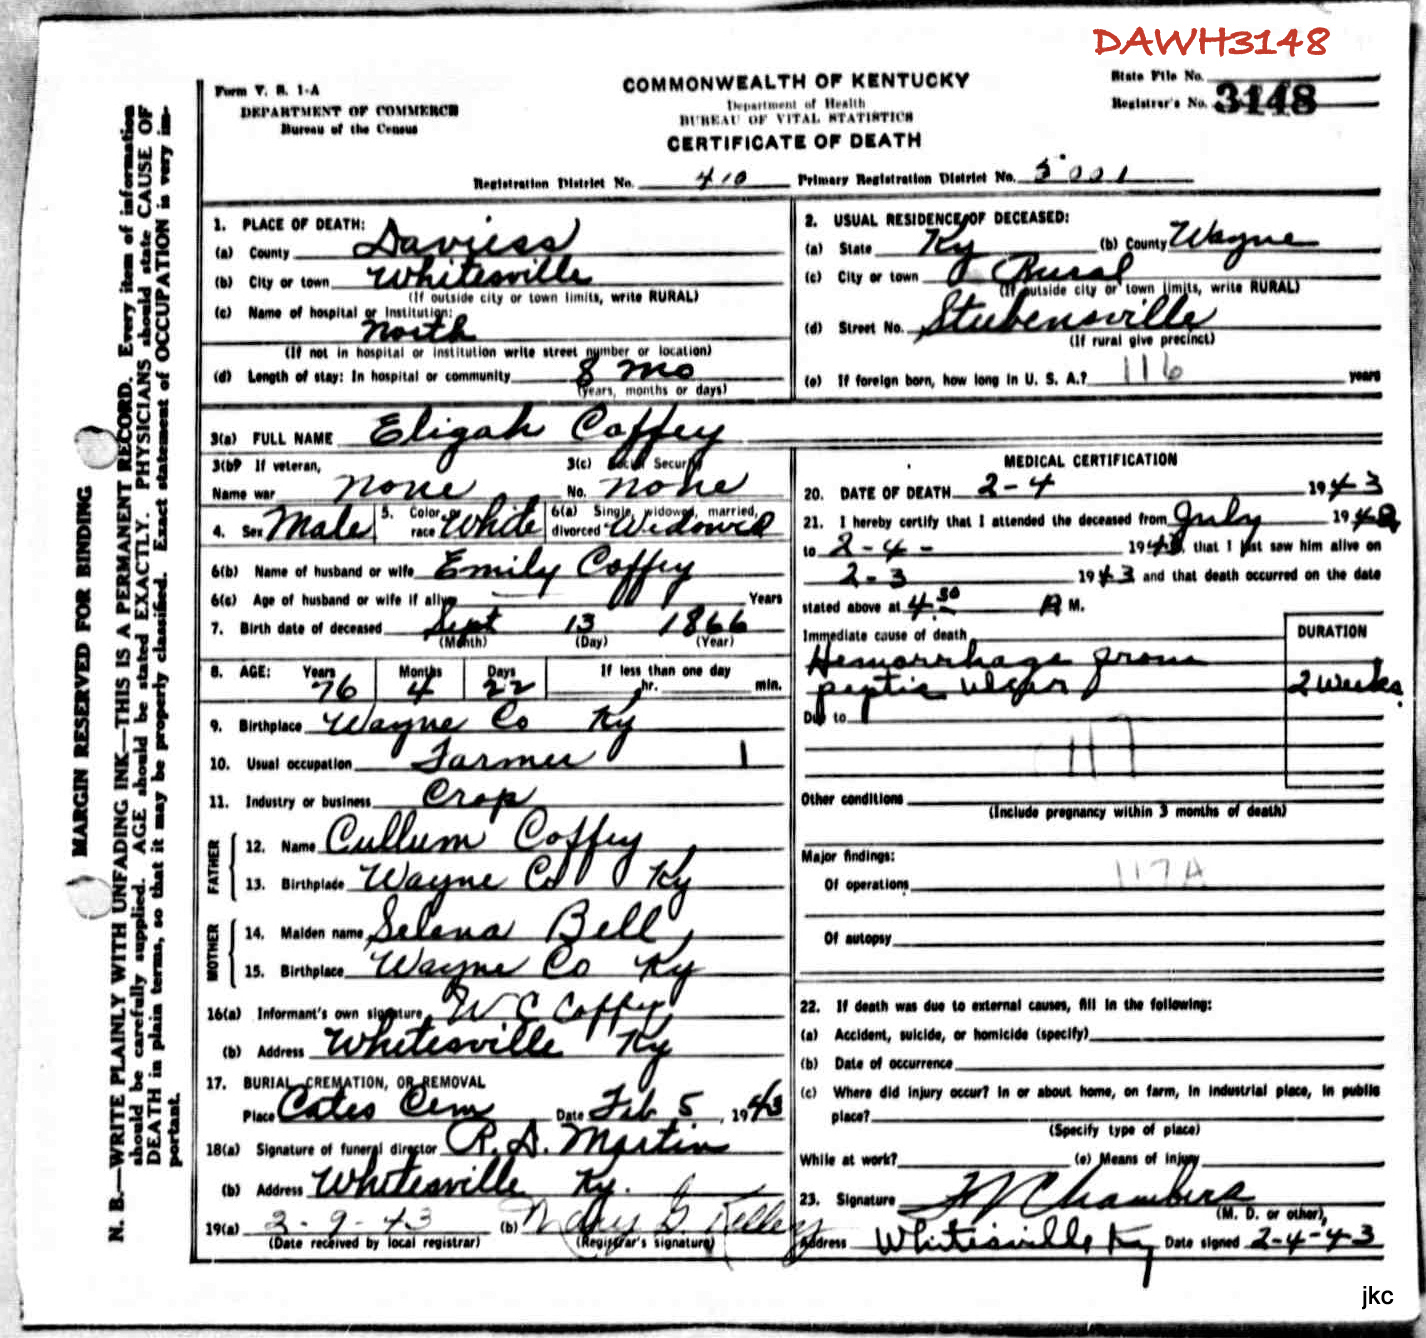 DAWH3148
Form V. S. 1-A
DEPARTMENT OF COMMERCE
Bureau of the Census
COMMONWEALTH OF KENTUCKY
Department of Health
BUREAU OF VITAL STATISTICS
CERTIFICATE OF DEATH
State File No.
Registrar's No. 3148
Registration District No. 410 Primary Registration District No. 5001
MARGIN RESERVED FOR BINDING
N. B.—WRITE PLAINLY WITH UNFADING INK—THIS IS A PERMANENT RECORD. Every item of information
should be carefully supplied. AGE should be stated EXACTLY. PHYSICIANS should state CAUSE OF
DEATH in plain terms, so that it may be properly classified. Exact statement of OCCUPATION is very im-
portant.
1. PLACE OF DEATH:
(a) County Daviess
(b) City or town Whitesville
(If outside city or town limits, write RURAL)
(c) Name of hospital or Institution:
North
(If not in hospital or institution write street number or location)
(d) Length of stay: In hospital or community 8 mo
(years, months or days)
2. USUAL RESIDENCE OF DECEASED:
(a) State Ky (b) County Wayne
(c) City or town Rural
(If outside city or town limits, write RURAL)
(d) Street No. Stubensville
(If rural give precinct)
(e) If foreign born, how long in U. S. A.? 116 years
3(a) FULL NAME Eligah Coffey
3(b) If veteran,
Name war none
3(c) Social Security
No. none
4. Sex Male 5. Color or race White 6(a) Single, widowed, married, divorced Widowed
6(b) Name of husband or wife Emily Coffey
6(c) Age of husband or wife if alive Years
7. Birth date of deceased Sept 13 1866
(Month) (Day) (Year)
8. AGE: Years Months Days If less than one day
76 4 22 hr. min.
9. Birthplace Wayne Co Ky
10. Usual occupation Farmer 1
11. Industry or business Crop
FATHER
12. Name Cullum Coffey
13. Birthplace Wayne Co Ky
MOTHER
14. Maiden name Selena Bell
15. Birthplace Wayne Co Ky
16(a) Informant's own signature W C Coffey
(b) Address Whitesville Ky
17. BURIAL, CREMATION, OR REMOVAL
Place Cates Cem Date Feb 5, 1943
18(a) Signature of funeral director R. D. Martin
(b) Address Whitesville Ky.
19(a) 2-9-43 (b) Mary G Kelley
(Date received by local registrar) (Registrar's signature)
MEDICAL CERTIFICATION
20. DATE OF DEATH 2-4 1943
21. I hereby certify that I attended the deceased from July 1942
to 2-4- 1943, that I last saw him alive on
2-3 1943 and that death occurred on the date
stated above at 4:30 A M.
Immediate cause of death DURATION
Hemorrhage from
peptic ulcer 2 Weeks
Due to
117
Other conditions
(Include pregnancy within 3 months of death)
Major findings:
117A
Of operations
Of autopsy
22. If death was due to external causes, fill in the following:
(a) Accident, suicide, or homicide (specify)
(b) Date of occurrence
(c) Where did injury occur? In or about home, on farm, in industrial place, in public
place?
(Specify type of place)
While at work? (e) Means of injury
23. Signature Chambers
(M. D. or other)
Address Whitesville Ky Date signed 2-4-43
jkc